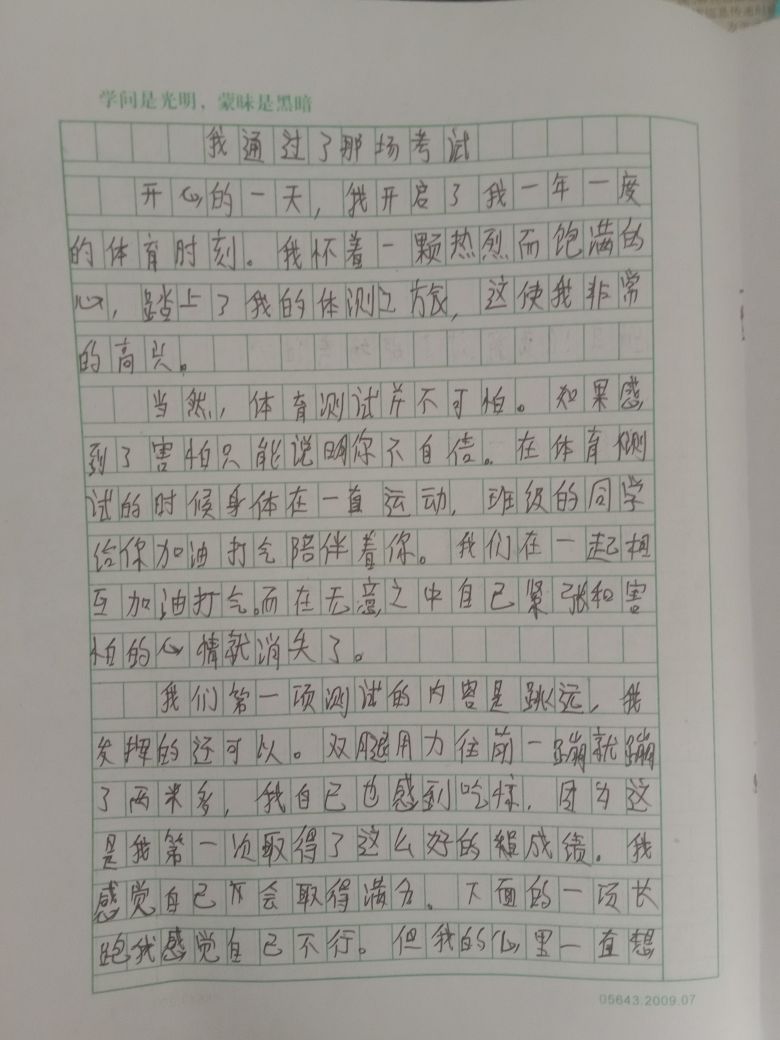 学问是光明，蒙昧是黑暗
我通过了那场考试
开心的一天，我开启了我一年一度
的体育时刻。我怀着一颗热烈而饱满的
心，踏上了我的体测之旅，这使我非常
的高兴。
当然，体育测试并不可怕。如果感
到了害怕只能说明你不自信。在体育测
试的时候身体在一直运动，班级的同学
给你加油打气陪伴着你。我们在一起相
互加油打气。而在无意之中自己紧张和害
怕的心情就消失了。
我们第一项测试的内容是跳远，我
发挥的还可以。双腿用力往前一蹦就蹦
了两米多，我自己也感到吃惊，因为这
是我第一次取得了这么好的成绩。我
感觉自己会取得满分。下面的一项长
跑我感觉自己不行。但我的心里一直想
05643.2009.07